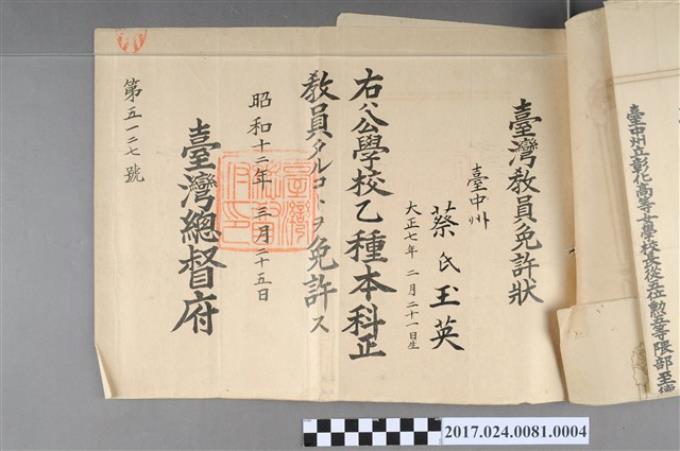 臺中州立彰化高等女學校長從五位勲五等隈部至德
臺灣教員免許狀
臺中州
蔡氏玉英
大正七年二月二十一日生
右公學校乙種本科正
教員タルコトヲ免許ス
昭和十二年三月二十五日
臺灣總督府
第五一二七號
2017.024.0081.0004